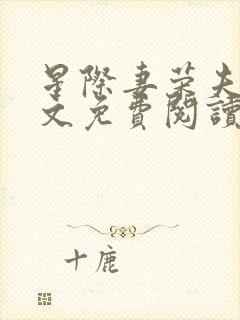 星際妻榮夫
文免費閱讀
十鹿